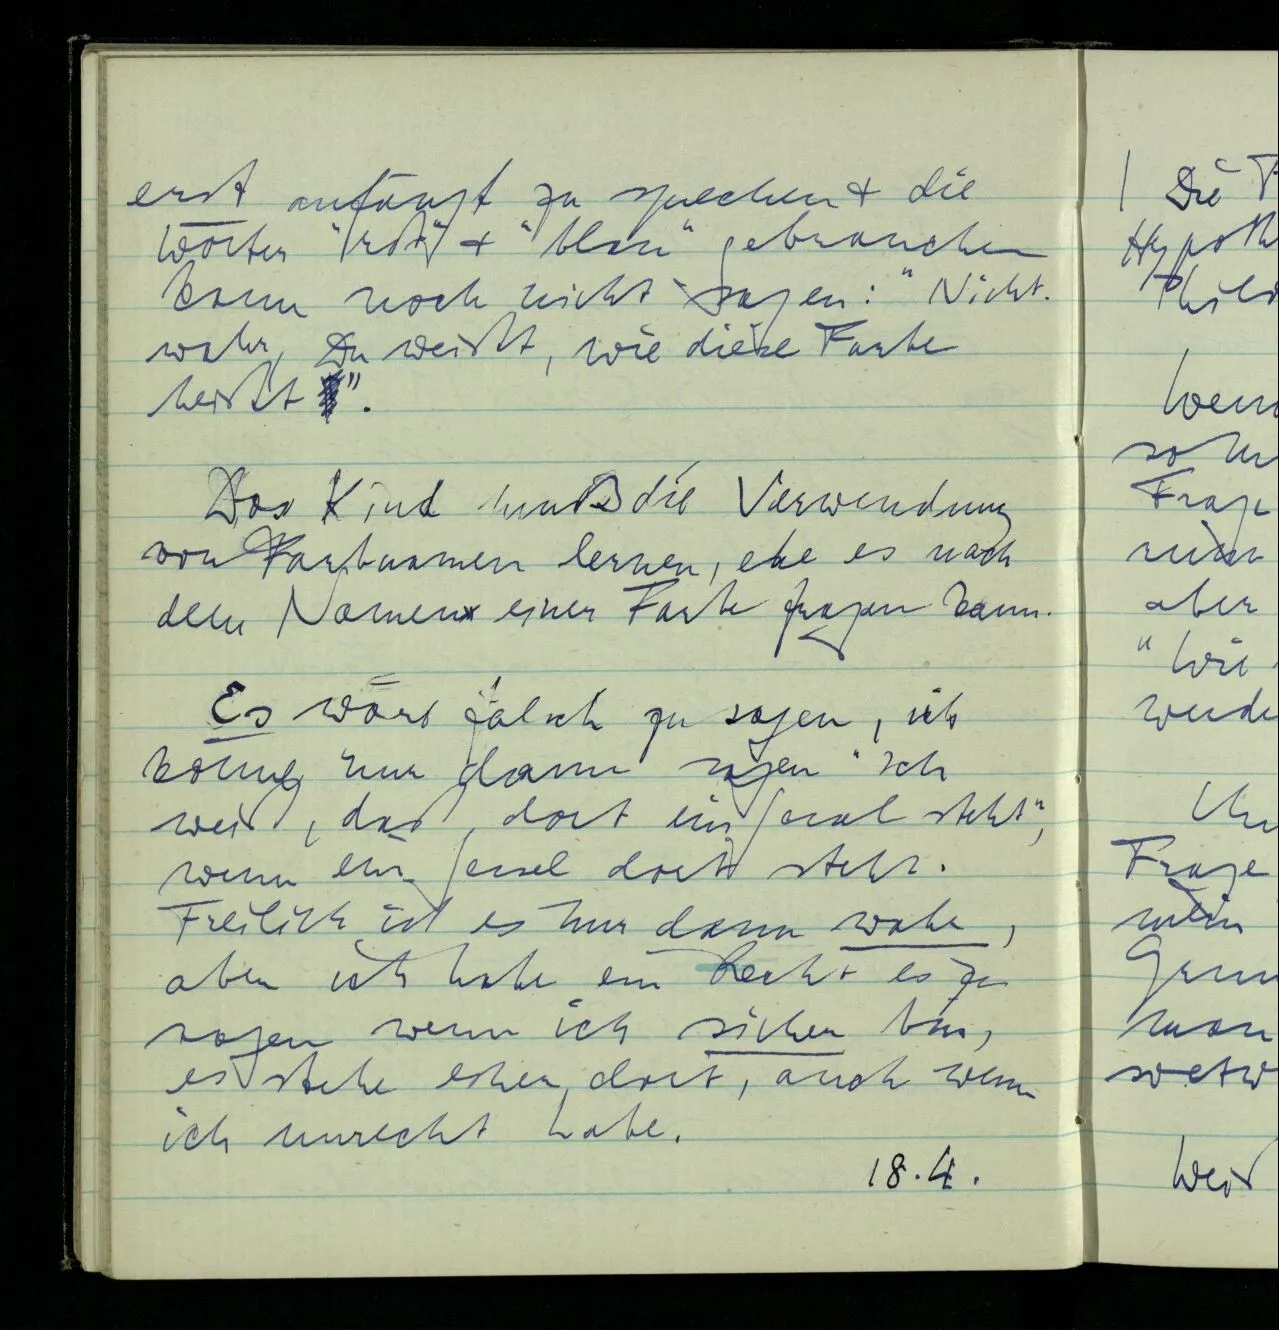 erst anfängt zu sprechen & die
Wörter "rot" & "blau" gebrauchen
kann noch nicht sagen: "Nicht
wahr, Du weißt, wie diese Farbe
heißt".
Das Kind muß die Verwendung
von Farbnamen lernen, ehe es nach
dem Namen einer Farbe fragen kann.
Es wäre falsch zu sagen, ich
könne nur dann sagen "ich
weiß, daß dort ein Sessel steht",
wenn ein Sessel dort steht.
Freilich ist es nur dann wahr,
aber ich habe ein Recht es zu
sagen wenn ich sicher bin,
es stehe einer dort, auch wenn
ich unrecht habe.
18.4.
| Die F
Hypoth
Phil
Wenn
so
Frage
aber
"Wie
werde
Frage
mein
Grun
man
soetw
Weiß